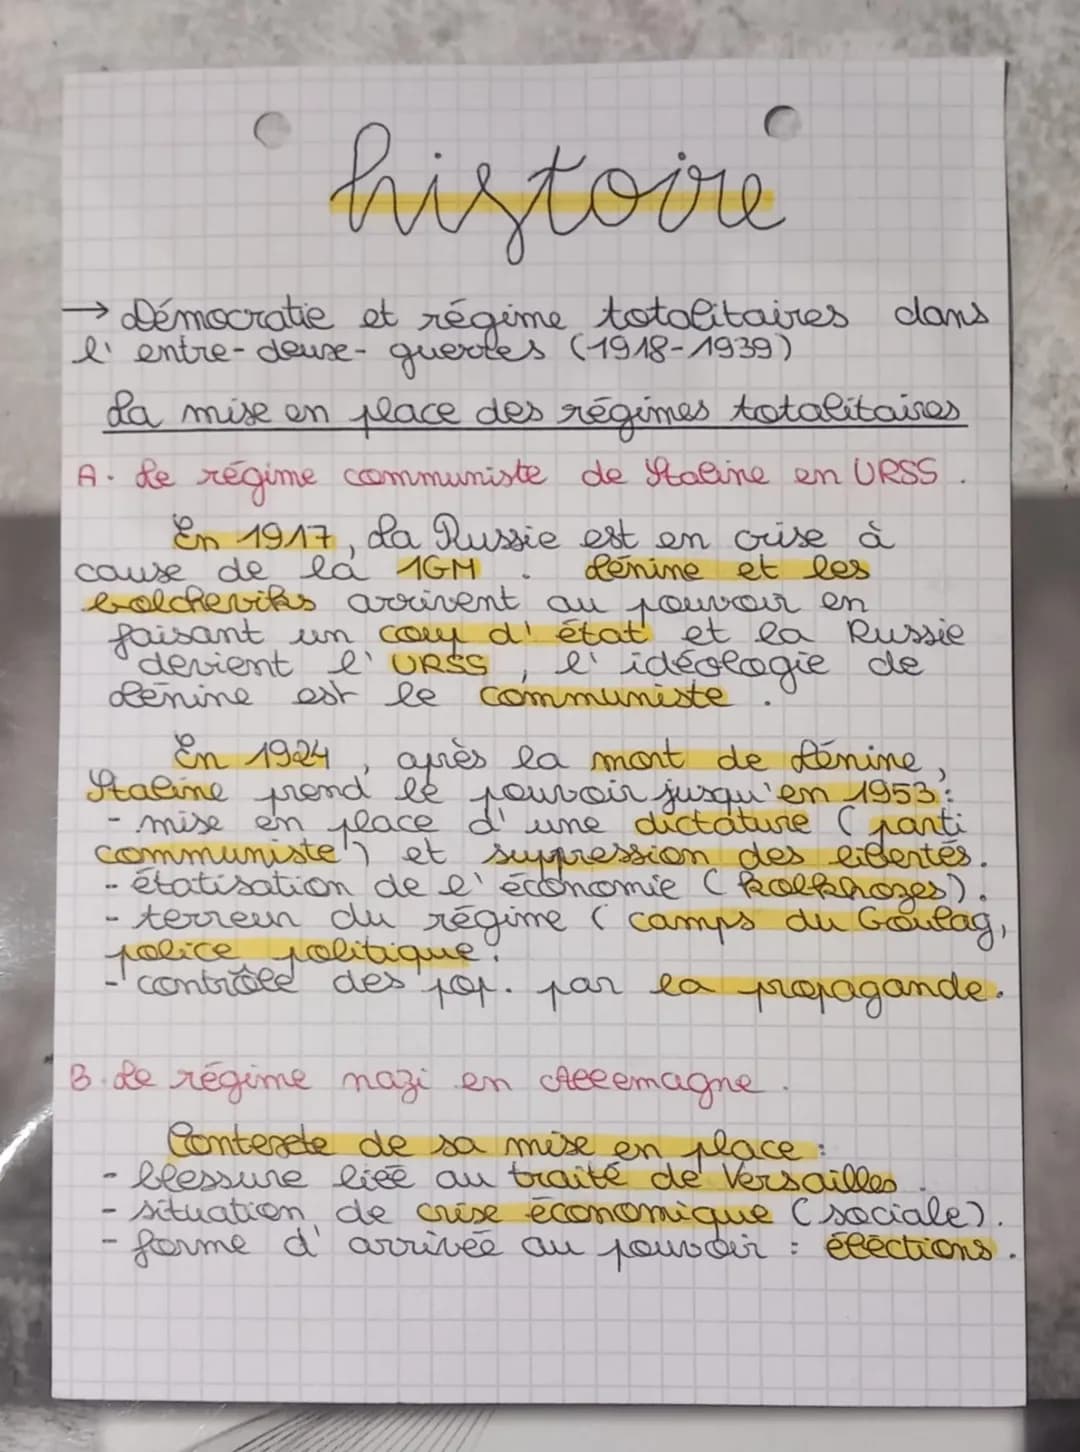 histoire
→ Démocratie et régime totalitaires dans
l'entre-deux-guerres (1918-1939)
La mise en place des régimes totalitaires
A. Le régime communiste de Staline en URSS.
En 1917, La Russie est en crise à
cause de la 1GM. Lénine et les
bolcheviks arrivent au pouvoir en
faisant un coup d'état et la Russie
devient l'URSS, l'idéologie de
Lénine est le communiste.
En 1924, après la mort de Lénine,
Staline prend le pouvoir jusqu'en 1953:
- mise en place d'une dictature (parti
communiste) et suppression des libertés.
- étatisation de l'économie (kolkhozes).
- terreur du régime (camps du Goulag,
police politique.
- contrôle des pop. par la propagande.
B. Le régime nazi en Allemagne.
Contexte de sa mise en place:
- blessure liée au traité de Versailles.
- situation de crise économique (sociale).
- forme d'arrivée au pouvoir : élections.